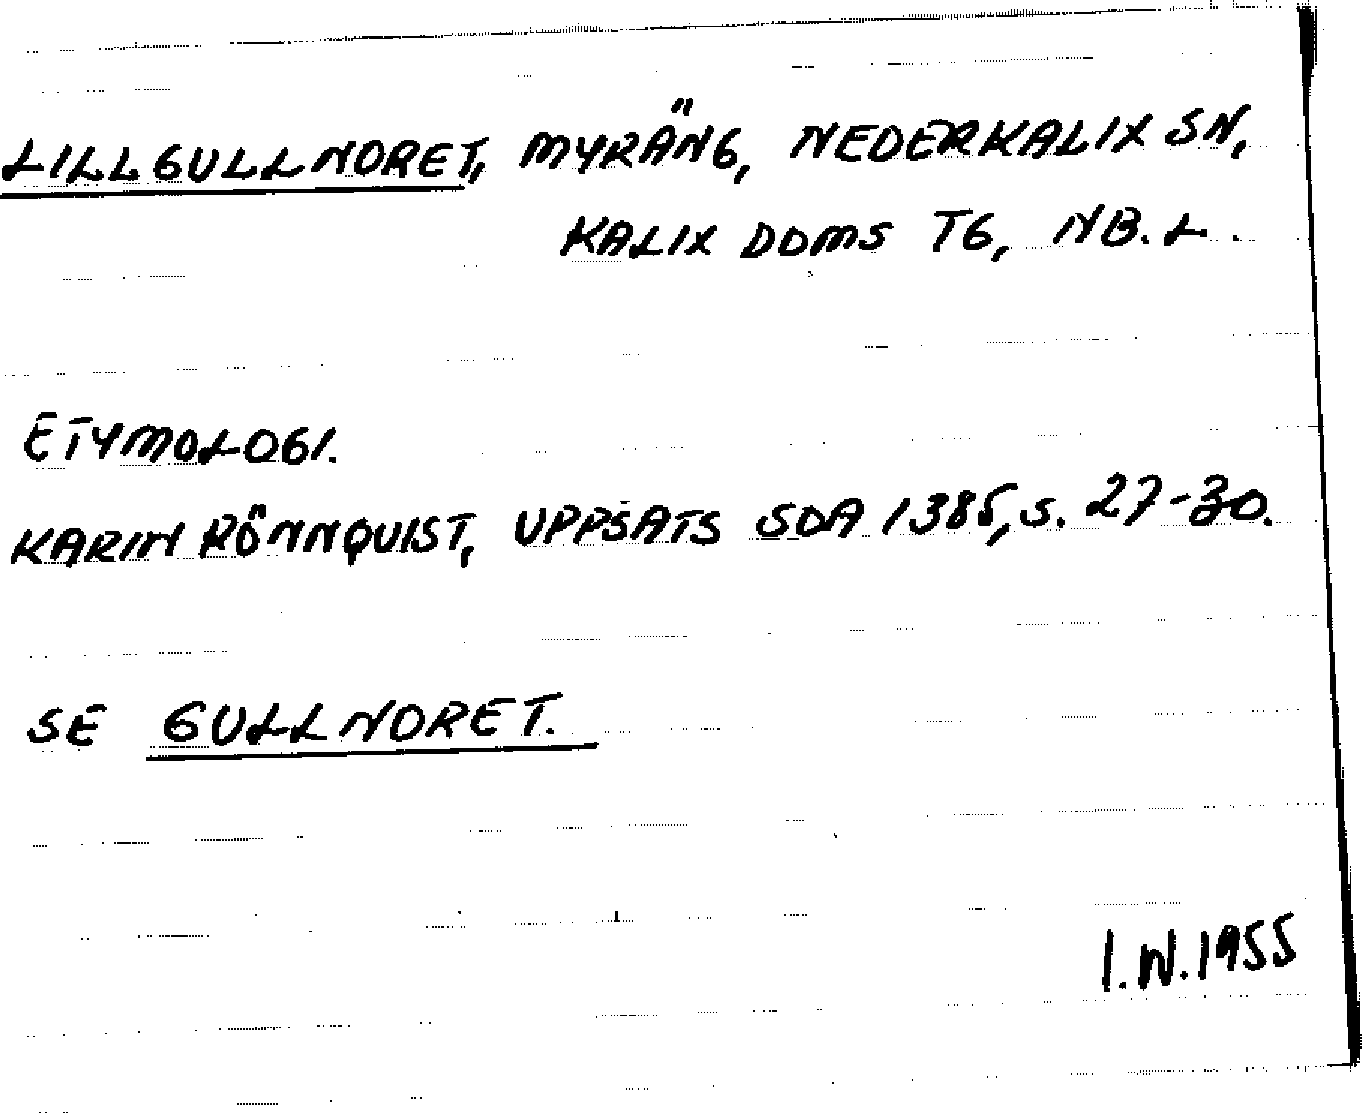 LILLGULLNORET, MYRÄNG, NEDERKALIX SN,
KALIX DOMS TG, NB. L.
ETYMOLOGI.
KARIN RÖNNQUIST, UPPSATS SOA 1385, S. 27-30.
SE GULLNORET.
I.W.1955